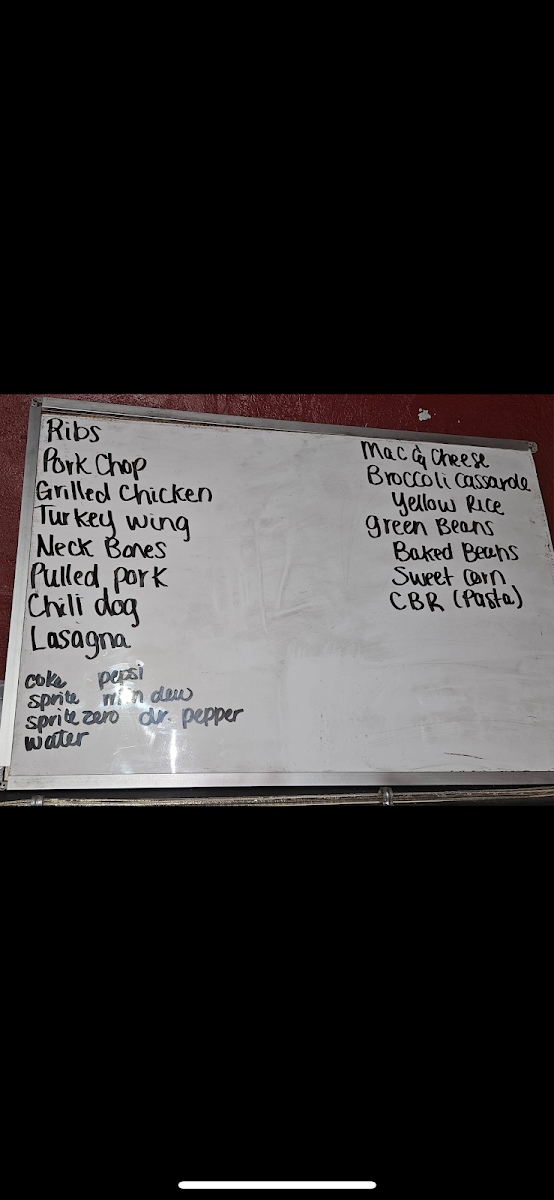 Ribs
Pork Chop
Grilled Chicken
Turkey wing
Neck Bones
Pulled pork
Chili dog
Lasagna
coke pepsi
sprite mtn dew
sprite zero dr. pepper
water
Mac & Cheese
Broccoli cassarole
Yellow Rice
green Beans
Baked Beans
Sweet Corn
CBR (Pasta)